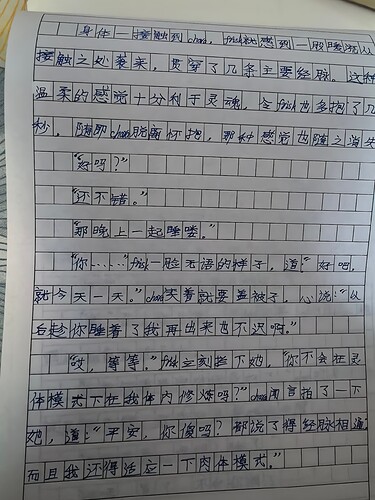 身体一接触到chara，frisk就感到一股暖流从
接触之处袭来，贯穿了几条主要经脉。这种
温柔的感觉十分利于灵魂，令frisk也多抱了几
秒。随即chara脱离怀抱，那种感觉也随之消失
“好吗？”
“还不错。”
“那晚上一起睡喽。”
“你……”frisk一脸无语的样子，道：“好吧，
就今天一天。”chara笑着就要盖被了，心说：“以
后趁你睡着了我再出来也不迟啊。”
“哎，等等。”frisk立刻拦下她，“你不会在灵
体模式下在我体内修炼吗？”chara闻言拍了一下
她，道：“平安，你傻吗？都说了得经脉相通，
而且我还得适应一下肉体模式。”